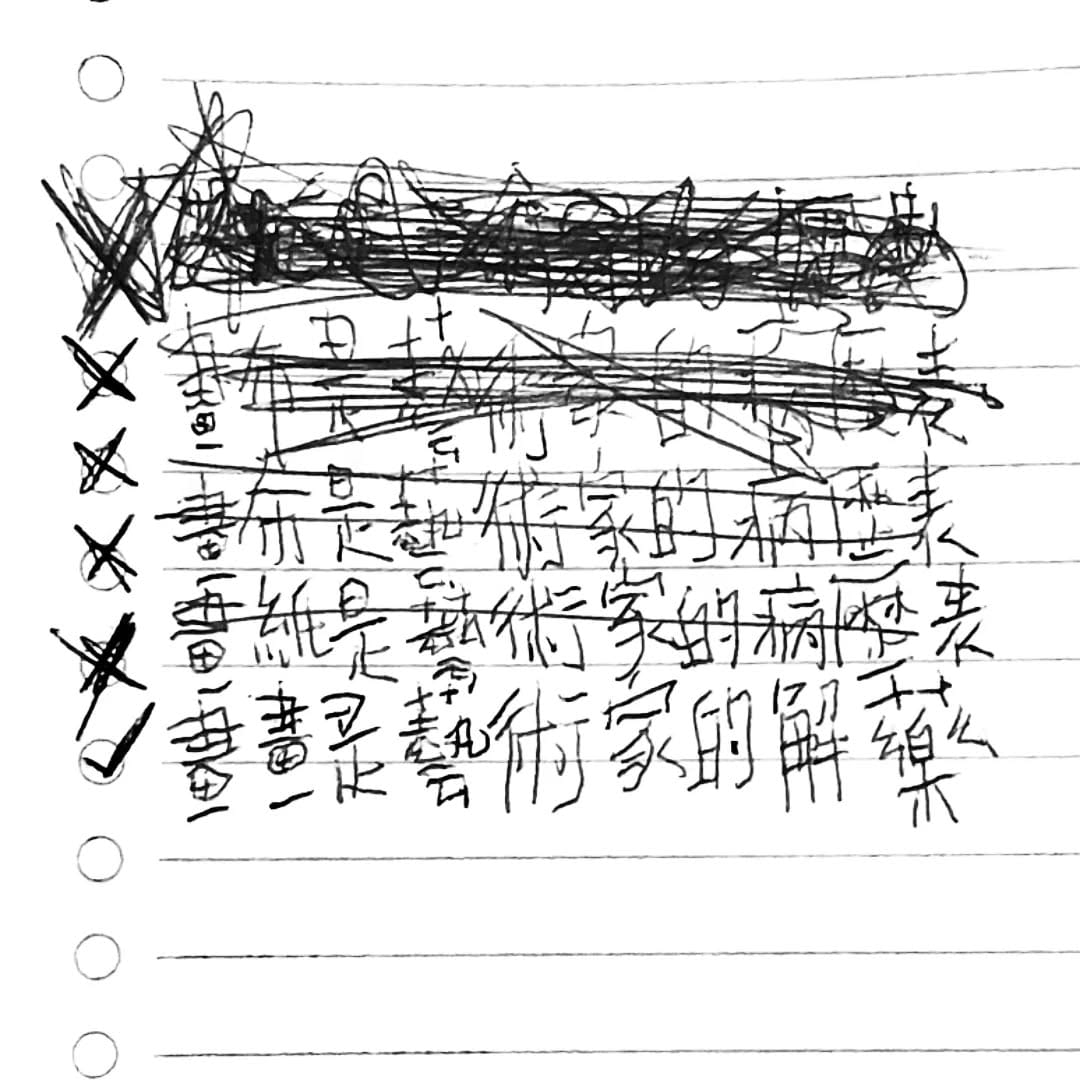 畫布是藝術家的病歷表
畫布是藝術家的病歷表
畫維是藝術家的病歷表
畫畫是藝術家的解藥